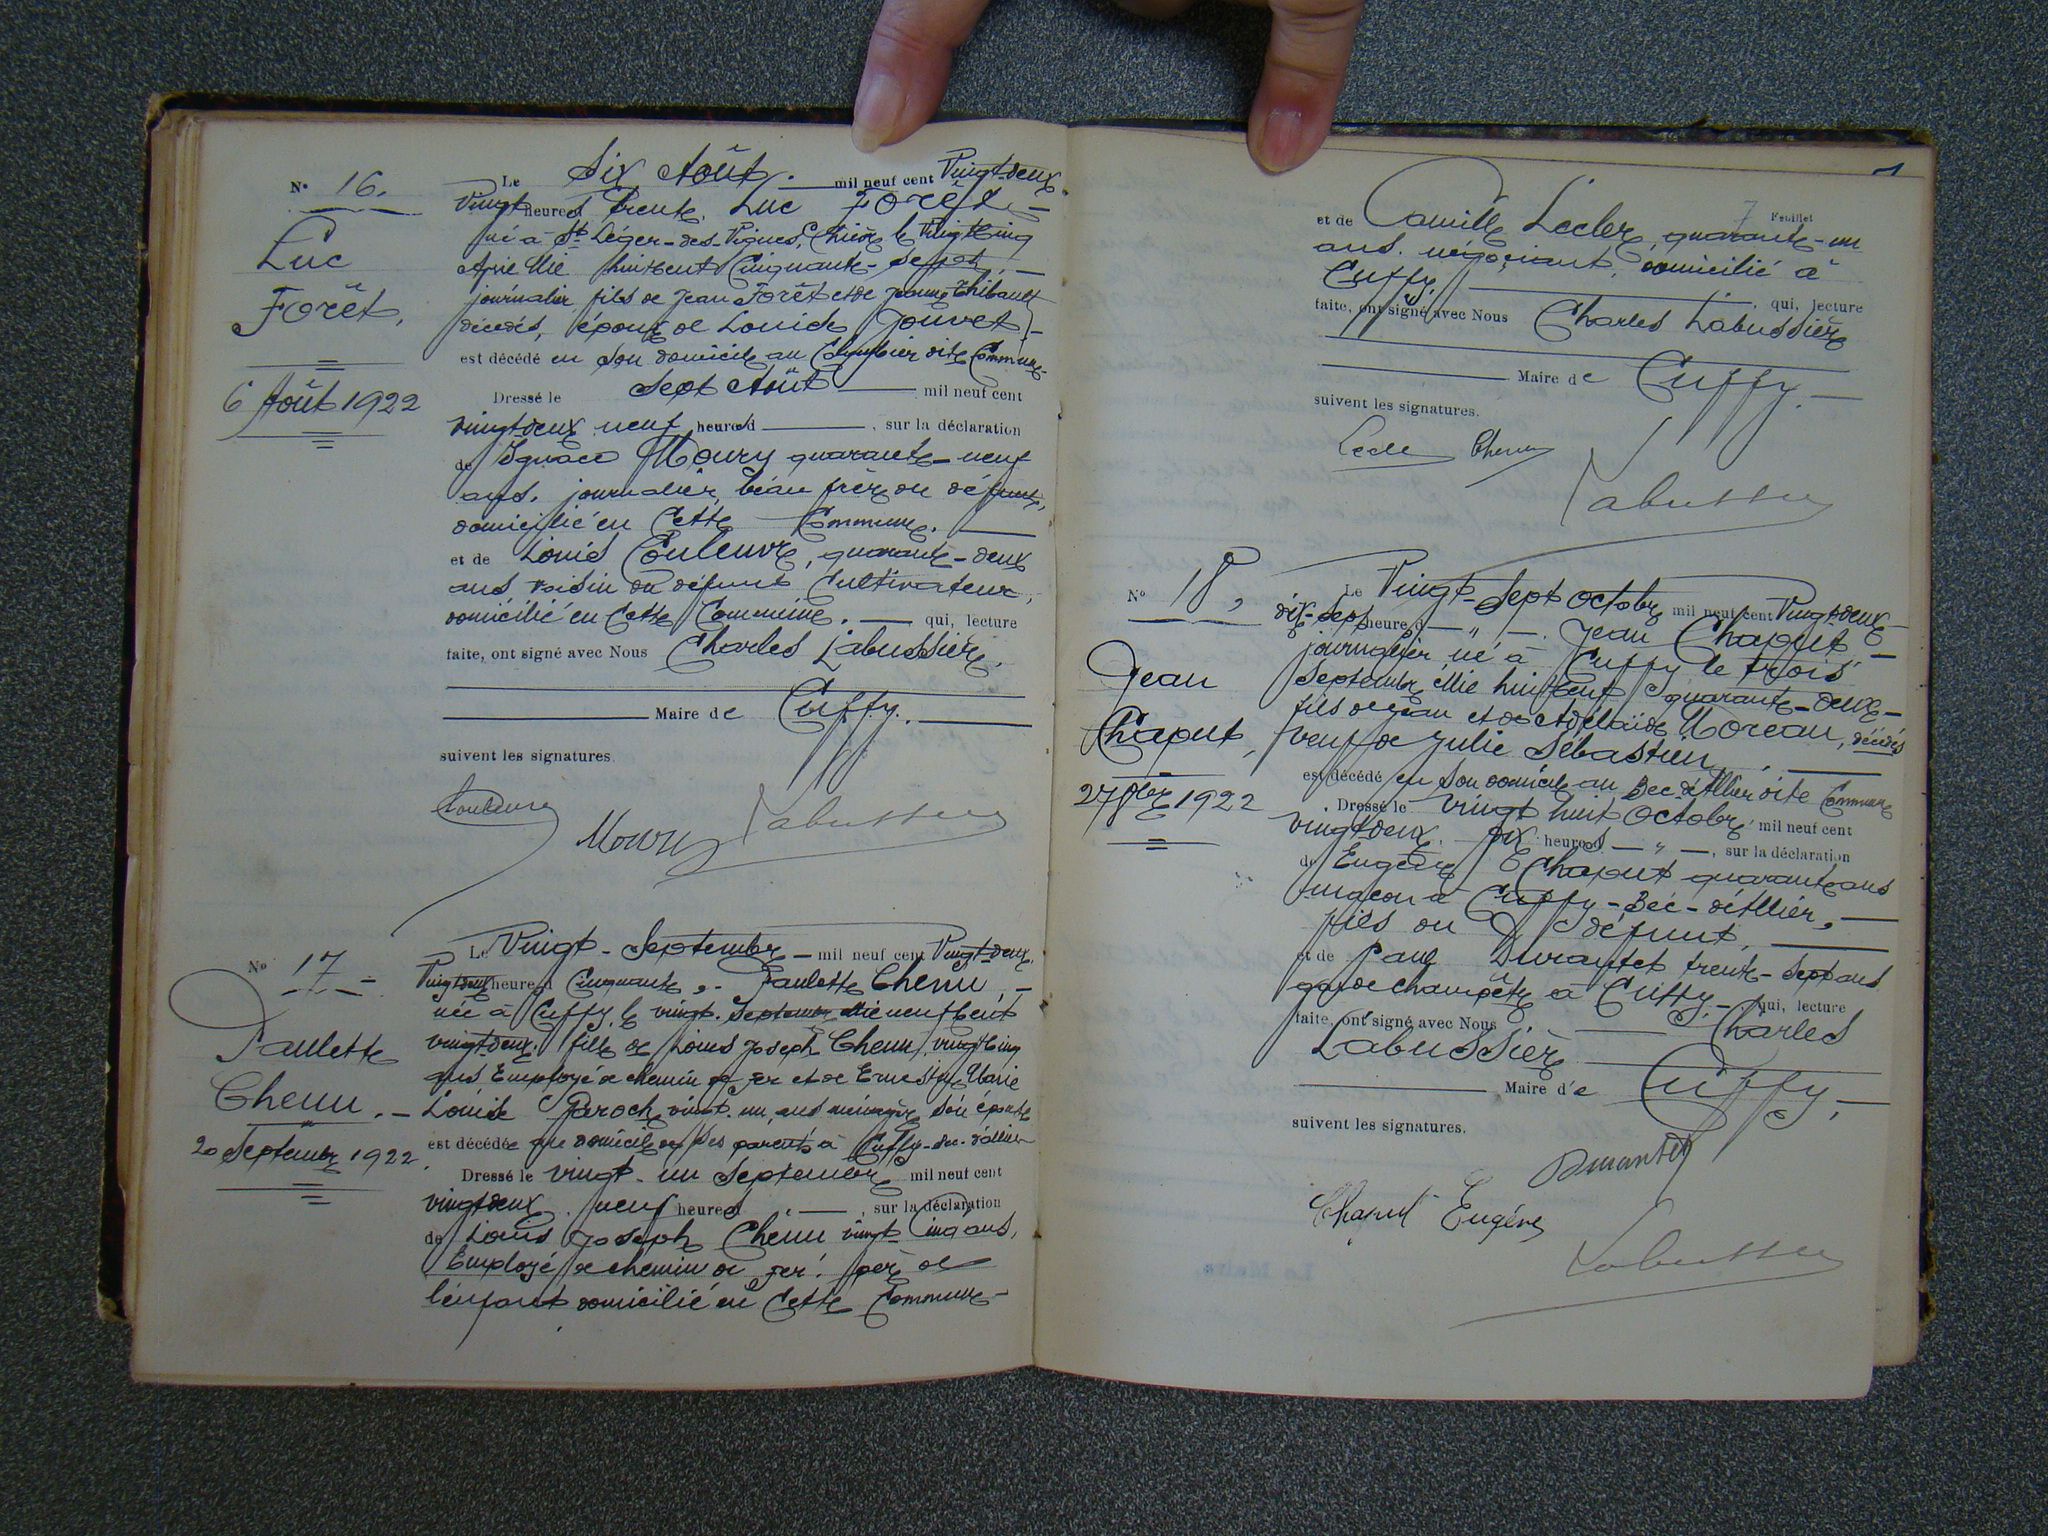 N° 16.
Luc
Forêt.
6 Août 1922
Le Six Août. mil neuf cent Vingt-deux
Vingt heures trente. Luc Forêt
né à St Léger-des-Vignes, le Vingt cinq
Avril Mil huit cent Cinquante-Sept,
journalier fils de Jean Forêt et de Jeanne Thibault
décédés, époux de Louise Jouvet
est décédé en Son domicile au Colombier dite Commune
Dressé le Sept Août mil neuf cent
vingt-deux neuf heures , sur la déclaration
de Ignace Moury quarante-neuf
ans. journalier, beau frère du défunt,
domicilié en Cette Commune.
et de Louis Couleuvre, quarante-deux
ans, voisin du défunt Cultivateur,
domicilié en Cette Commune. qui, lecture
faite, ont signé avec Nous Charles Labussière,
Maire de Cuffy.
suivent les signatures.
Couleuvre
Moury Labussière
N° 17
Paulette
Chenu.
20 Septembre 1922.
Le Vingt-Septembre mil neuf cent Vingt-deux,
Vingt deux heures Cinquante Paulette Chenu,
née à Cuffy, le vingt. Septembre Mil neuf Cent
vingt-deux. fille de Louis Joseph Chenu, vingt cinq
ans Employé de chemin de fer et de Ernestine Marie
Louise Paroch vingt-un ans ménagère son épouse
est décédée au domicile de Ses parents à Cuffy-Bec-d'Allier
Dressé le vingt-un Septembre mil neuf cent
vingt-deux. neuf heures , sur la déclaration
de Louis Joseph Chenu vingt-cinq ans,
Employé de chemin de fer. père de
l'enfant domicilié en Cette Commune
7 Feuillet
et de Camille Lecler, quarante-un
ans. négociant, domicilié à
Cuffy, qui, lecture
faite, ont signé avec Nous Charles Labussière
Maire de Cuffy.
suivent les signatures.
Lecler Chenu
Labussière
N° 18,
Jean
Chaput,
27 8bre 1922
Le Vingt-Sept Octobre mil neuf cent Vingt-deux
dix-sept heures — " —. Jean Chaput
journalier, né à Cuffy le trois
Septembre Mil huit cent quarante-deux
fils de Jean et de Adélaïde Moreau, décédés
veuf de Julie Sébastien,
est décédé en Son domicile au Bec-d'Allier dite Commune
Dressé le vingt huit Octobre mil neuf cent
vingt-deux. dix heures — " —, sur la déclaration
de Eugène Chaput quarante ans
maçon à Cuffy-Bec-d'Allier,
fils du défunt,
et de Paul Durantet trente-sept ans
garde champêtre à Cuffy, qui, lecture
faite, ont signé avec Nous Charles
Labussière
Maire de Cuffy,
suivent les signatures.
Durantet
Chaput Eugène
Labussière